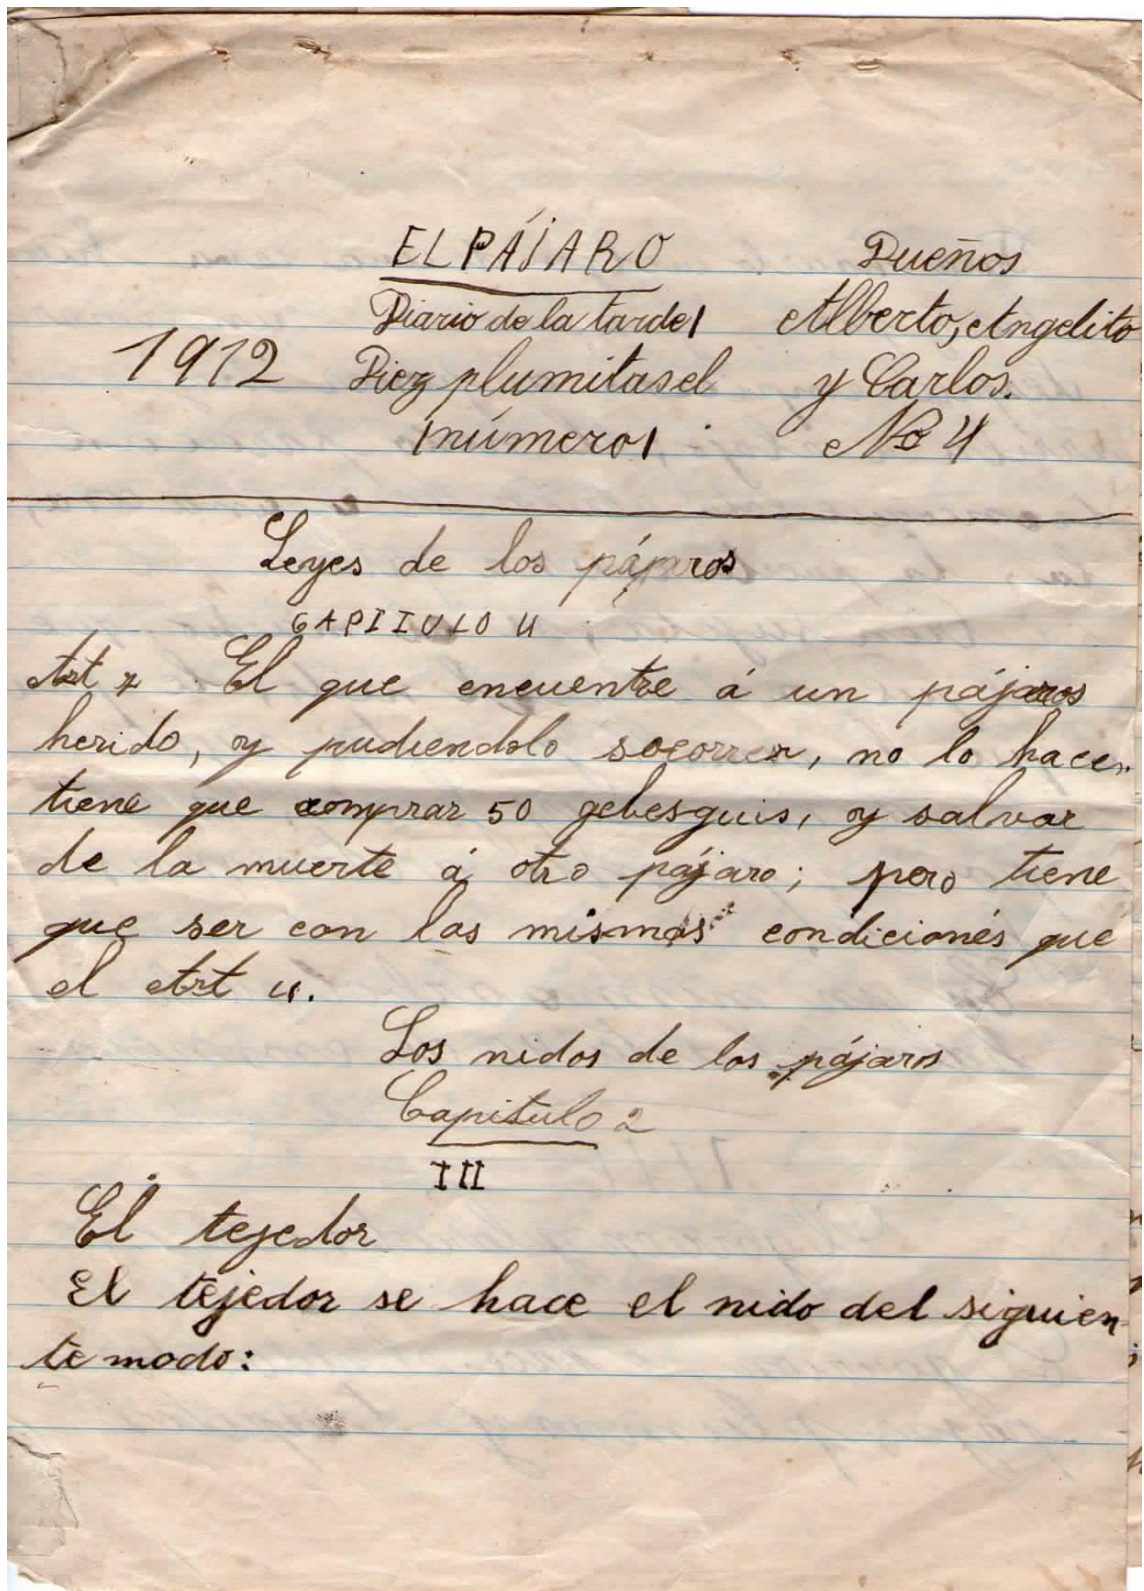 EL PÁJARO
Dueños
Diario de la tarde
Alberto, Angelito
1912
Diez plumitas el
y Carlos.
número
No 4
Leyes de los pájaros
CAPITULO 4
Art El que encuentre á un pájaros
herido, y pudiendolo socorrer, no lo hace,
tiene que comprar 50 gebesguis, y salvar
de la muerte á otro pájaro; pero tiene
que ser con las mismas condiciónes que
el Art 4.
Los nidos de los pájaros
Capitulo 2
III
El tejedor
El tejedor se hace el nido del siguien
te modo: